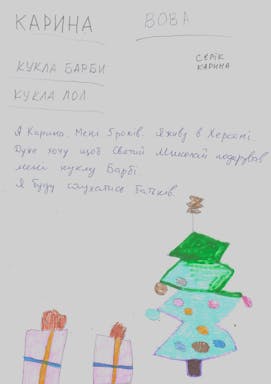 КАРИНА
ВОВА
СЄРІК
КАРИНА
КУКЛА БАРБИ
КУКЛА ЛОЛ
Я Карина. Мені 5років. Я живу в Херсоні.
Дуже хочу щоб Святий Миколай подарував
мені куклу Барбі.
Я буду слухатись батьків.